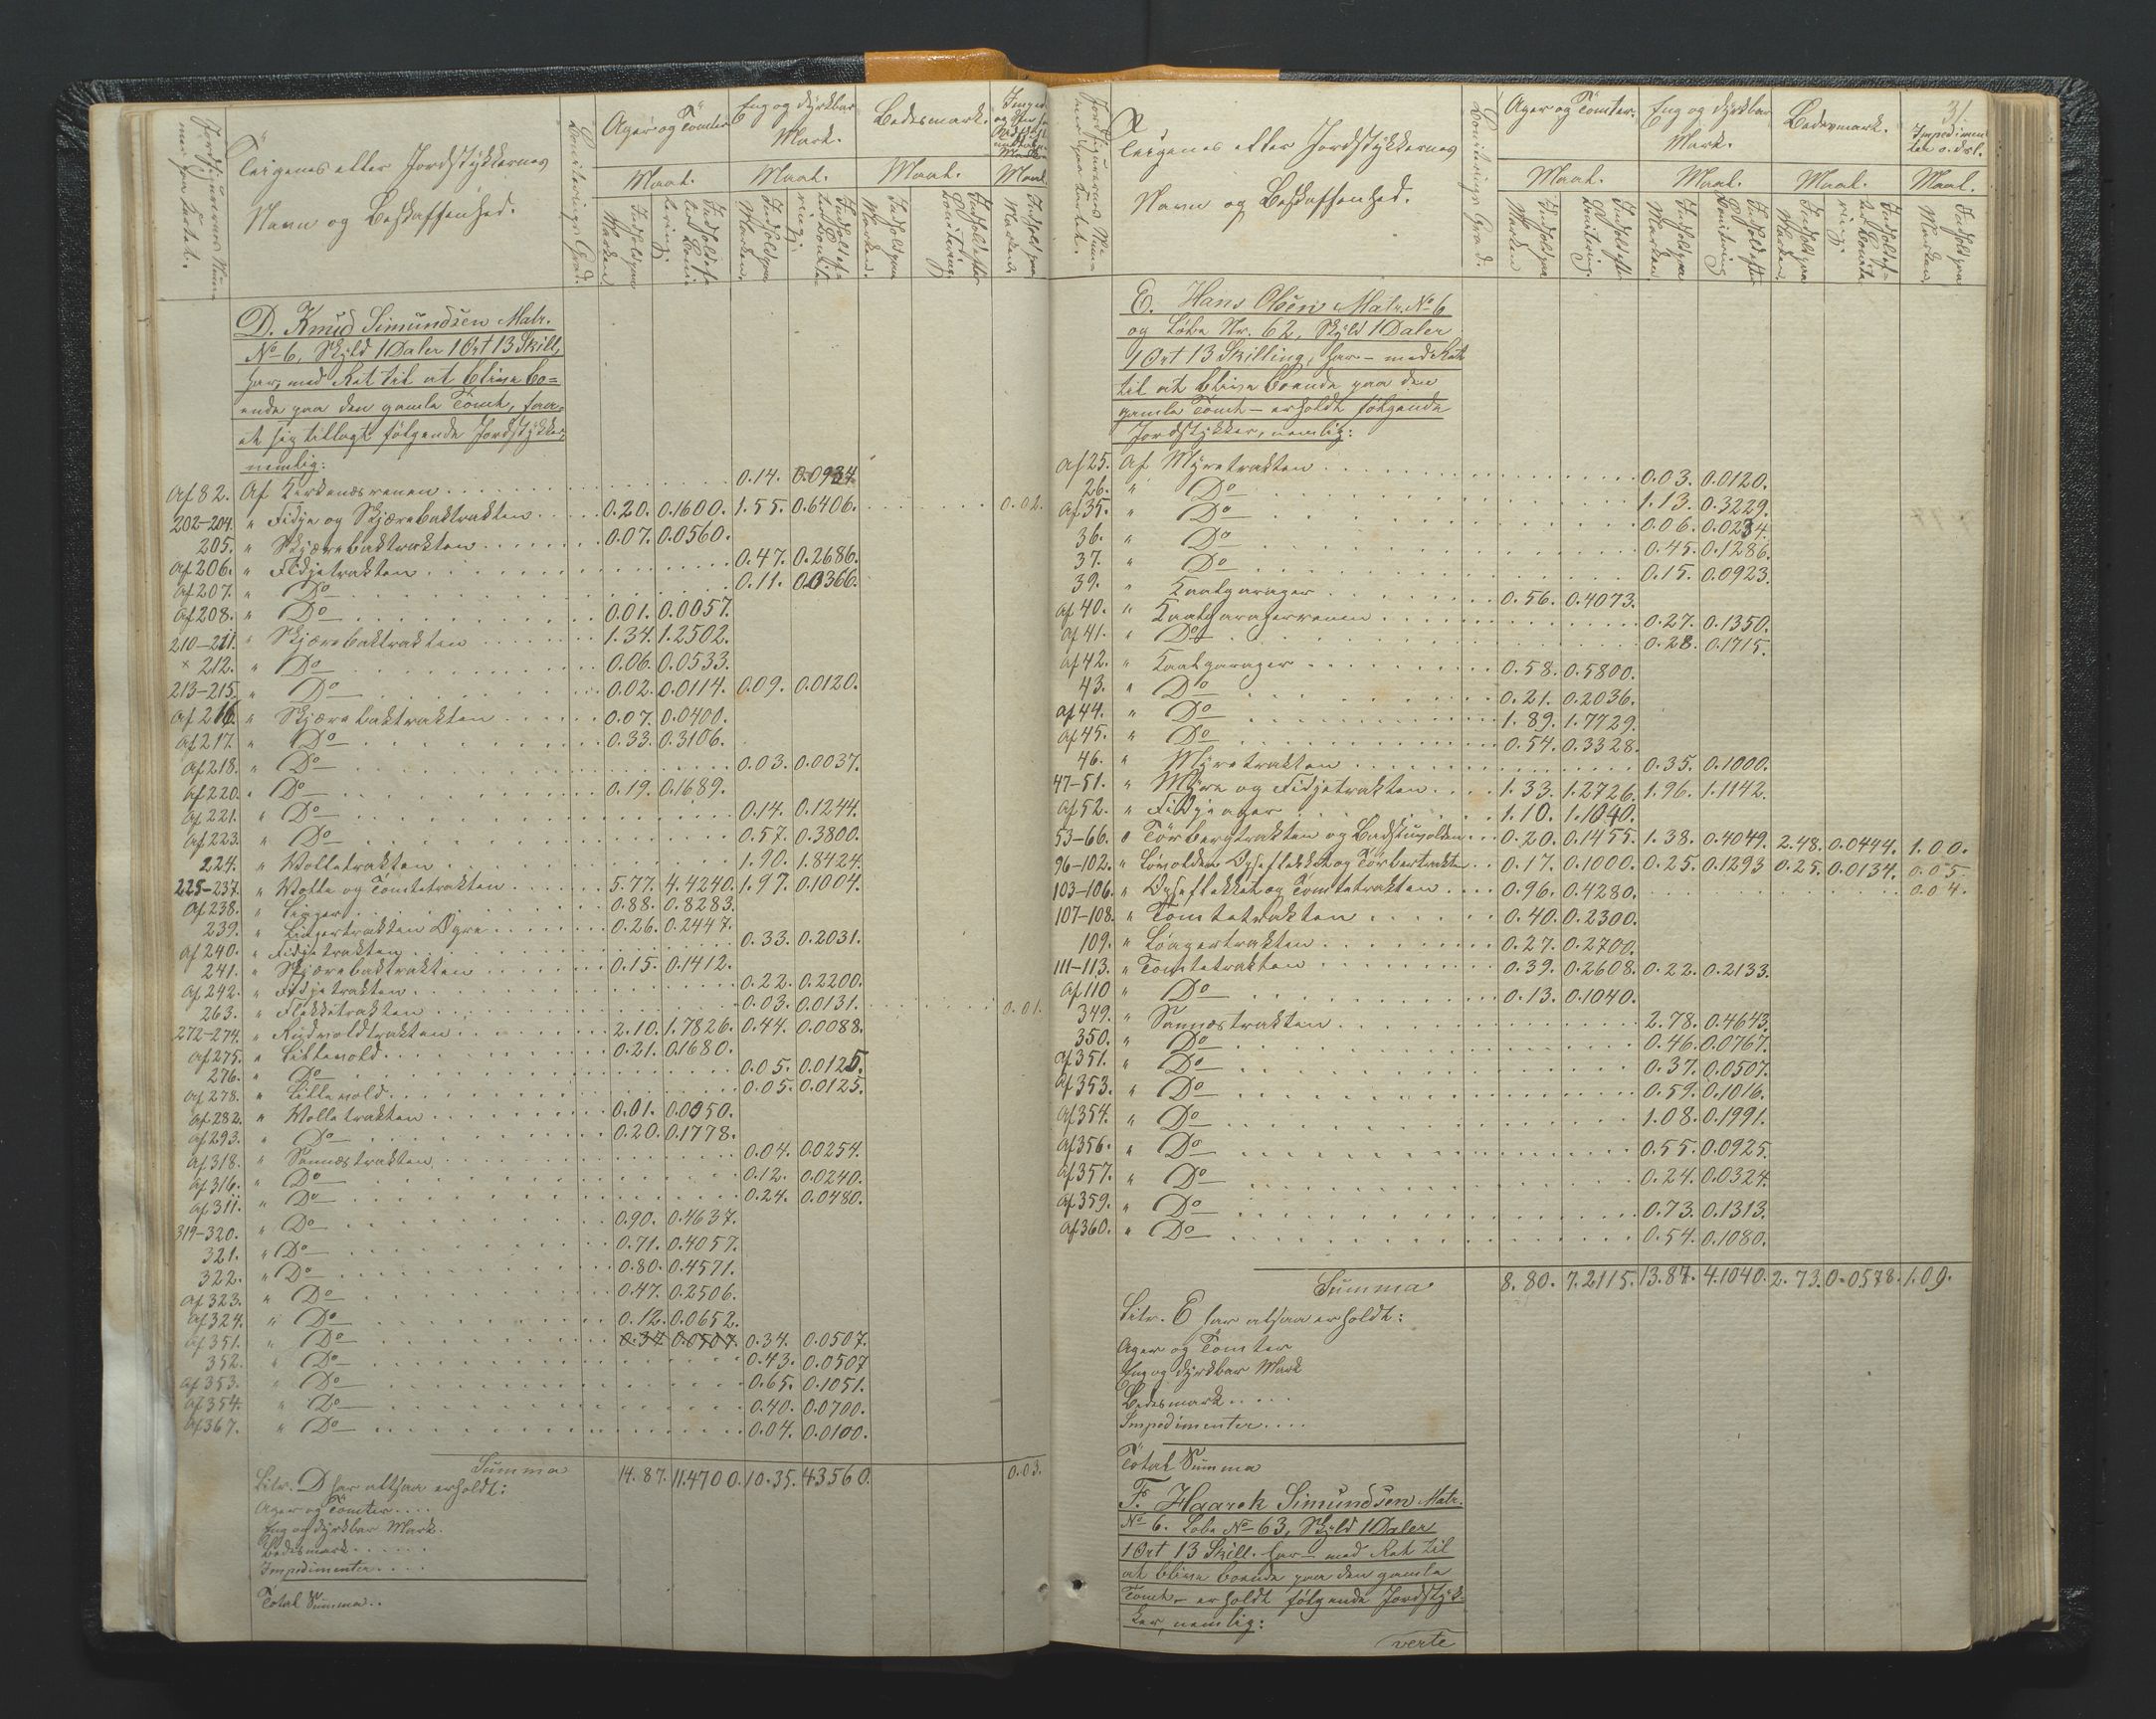 Teigenes eller Jordstykkernes
Navn og Beskaffenhed.
Jordfigurernes Num̅er paa Kartet.
Boniterings Grad.
Ager og Tomter
Eng og dyrkbar Mark.
Bedesmark.
Maal. Maal. Maal. Maal.
D. Knud Simundsen Matr.
No 6, Skyld 1 Daler 1 Ort 13 Skill.
har, med Ret til at blive bo=
ende paa den gamle Tomt, faa=
et sig tillagt følgende Jordstykker,
nemlig:
Af 82. Af Kirkenæsrenen 0.14. 0.0934.
202-204. " Fidje og Skjærebaktrakten 0.20. 0.1600. 1.55. 0.6406. 0.02.
205. " Skjærebaktrakten 0.07. 0.0560.
Af 206. " Fidjetrakten 0.47. 0.2686.
Af 207. " Do 0.11. 0.0366.
Af 208. " Do 0.01. 0.0057.
210-211. " Skjærebaktrakten 1.34. 1.2502.
× 212. " Do 0.06. 0.0533.
213-215. " Do 0.02. 0.0114. 0.09. 0.0120.
Af 216. " Skjærebaktrakten 0.07. 0.0400.
Af 217. " Do 0.33. 0.3106.
Af 218. " Do 0.03. 0.0037.
Af 220. " Do 0.19. 0.1689.
Af 221. " Do 0.14. 0.1244.
Af 223. " Do 0.57. 0.3800.
224. " Volletrakten 1.90. 1.8424.
225-237. " Volle og Tomtetrakten 5.77. 4.4240. 1.97. 0.1004.
Af 238. " 0.88. 0.8283.
239. " Øgre 0.26. 0.2447.
Af 240. " Fidjetrakten 0.33. 0.2031.
241. " Skjærebaktrakten 0.15. 0.1412.
Af 242. " Fidjetrakten 0.22. 0.2200.
263. " Flekketrakten 0.03. 0.0131. 0.01.
272-274. " Rydvoldtrakten 2.10. 1.7826. 0.44. 0.0088.
Af 275. " Lillevold 0.21. 0.1680.
276. " Do 0.05. 0.0125.
Af 278. " Lillevold 0.05. 0.0125.
Af 282. " Volletrakten 0.01. 0.0050.
Af 293. " Do 0.20. 0.1778.
Af 318. " Sannæstrakten 0.04. 0.0254.
Af 316. " Do 0.12. 0.0240.
Af 311. " Do 0.24. 0.0480.
319-320. " Do 0.90. 0.4637.
321. " Do 0.71. 0.4057.
322. " Do 0.80. 0.4571.
Af 323. " Do 0.47. 0.2506.
Af 324. " Do 0.12. 0.0652.
Af 351. " Do 0.34 0.0507. 0.34. 0.0507.
352. " Do 0.43. 0.0507
Af 353. " Do 0.65. 0.1051.
Af 354. " Do 0.40. 0.0700.
Af 367. " Do 0.04. 0.0100.
Summa 14.87. 11.4700. 10.35. 4.3560. 0.03.
Litr. D har altsaa erholdt:
Ager og Tomter
Eng og dyrkbar Mark.
Bedesmark
Impedimenter
Total Summa
31
Jordfigurernes Num̅er paa Kartet.
Teigenes eller Jordstykkernes
Navn og Beskaffenhed.
Boniterings Grad.
Ager og Tomter.
Eng og dyrkbar Mark.
Bedesmark.
Impedimenter o. dsl.
Maal. Maal. Maal. Maal.
E. Hans Olsen Matr. No 6
og Løbe Nr. 62, Skyld 1 Daler
1 Ort 13 Skilling, har – med Ret
til at blive boende paa den
gamle Tomt – erholdt følgende
Jordstykker, nemlig:
Af 25. Af Myretrakten 0.03. 0.0120.
26. " Do 1.13. 0.3229.
Af 35. " Do 0.06. 0.0234.
36. " Do 0.45. 0.1286.
37. " Do 0.15. 0.0923.
39. " Kaalgarager 0.56. 0.4073.
Af 40. " Kaalgaragerrenen 0.27. 0.1350.
Af 41. " Do 0.28. 0.1715.
Af 42. " Kaalgarager 0.58. 0.5800.
43. " Do 0.21. 0.2036.
Af 44. " Do 1.89. 1.7729.
Af 45. " Do 0.54. 0.3328.
46. " Myretrakten 0.35. 0.1000.
47-51. " Myre og Fidjetrakten 1.33. 1.2726. 1.96. 1.1142.
Af 52. " Fidjeager 1.10. 1.1040.
53-66. " Torbergtrakten og Badstuvolden 0.20. 0.1455. 1.38. 0.4049. 2.48. 0.0444. 1.00.
96-102. " og 0.17. 0.1000. 0.25. 0.1293 0.25. 0.0134. 0.05.
103-106. " og Tomtetrakten 0.96. 0.4280. 0.04.
107-108. " Tomtetrakten 0.40. 0.2300.
109. " Løagertrakten 0.27. 0.2700.
111-113. " Tomtetrakten 0.39. 0.2608. 0.22. 0.2133.
Af 110 " Do 0.13. 0.1040.
349. " Sannæstrakten 2.78. 0.4643.
350. " Do 0.46. 0.0767.
Af 351. " Do 0.37. 0.0507.
Af 353. " Do 0.59. 0.1016.
Af 354. " Do 1.08. 0.1991.
Af 356. " Do 0.55. 0.0925.
Af 357. " Do 0.24. 0.0324.
Af 359. " Do 0.73. 0.1313.
Af 360. " Do 0.54. 0.1080.
Summa 8.80. 7.2115. 13.87. 4.1040. 2.73. 0.0578. 1.09.
Litr. E har altsaa erholdt:
Ager og Tomter
Eng og dyrkbar Mark
Bedesmark
Impedimenter
Total Summa
F. Haarek Simundsen Matr.
No 6. Løbe No 63, Skyld 1 Daler
1 Ort 13 Skill. har – med Ret til
at blive boende paa den gamle
Tomt – erholdt følgende Jordstyk-
ker, nemlig:
verte